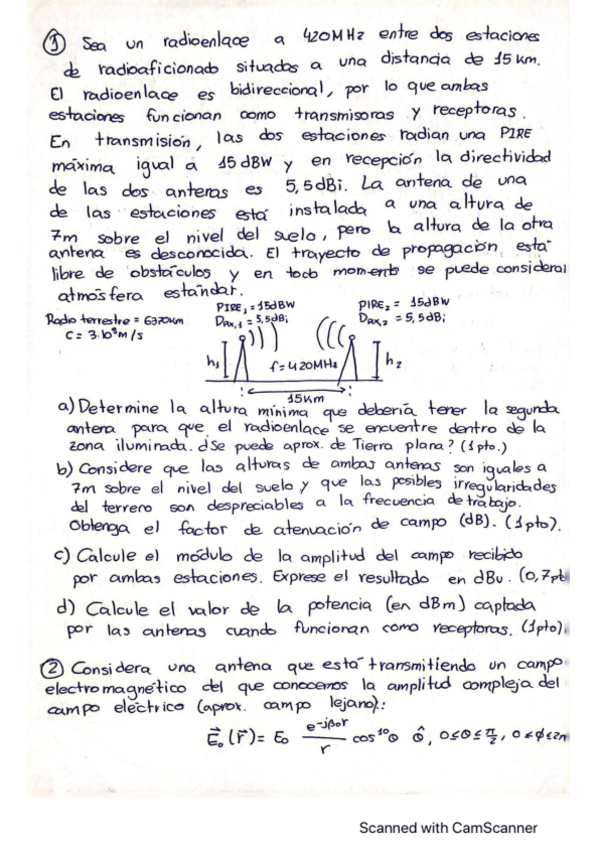 ① Sea un radioenlace a 420MHz entre dos estaciones
de radioaficionado situadas a una distancia de 15 km.
El radioenlace es bidireccional, por lo que ambas
estaciones funcionan como transmisoras y receptoras.
En transmisión, las dos estaciones radian una PIRE
máxima igual a 15 dBW y en recepción la directividad
de las dos antenas es 5,5dBi. La antena de una
de las estaciones está instalada a una altura de
7m sobre el nivel del suelo, pero la altura de la otra
antena es desconocida. El trayecto de propagación está
libre de obstáculos y en todo momento se puede considerar
atmósfera estándar.
Radio terrestre = 6370km
C = 3·10⁸m/s
PIRE₁ = 15dBW
DRX,1 = 5,5dBi
PIRE₂ = 15dBW
DRX,2 = 5,5dBi
h₁
f=420MHz
h₂
15km
a) Determine la altura mínima que debería tener la segunda
antena para que el radioenlace se encuentre dentro de la
zona iluminada. ¿Se puede aprox. de Tierra plana? (1pto.)
b) Considere que las alturas de ambas antenas son iguales a
7m sobre el nivel del suelo y que las posibles irregularidades
del terreno son despreciables a la frecuencia de trabajo.
Obtenga el factor de atenuación de campo (dB). (1pto).
c) Calcule el módulo de la amplitud del campo recibido
por ambas estaciones. Exprese el resultado en dBu. (0,7pt
d) Calcule el valor de la potencia (en dBm) captada
por las antenas cuando funcionan como receptoras. (1pto)
② Considera una antena que está transmitiendo un campo
electromagnético del que conocemos la amplitud compleja del
campo eléctrico (aprox. campo lejano):
E⃗₀(r⃗) = E₀ e^(-jβ₀r)/r cos¹⁰θ θ̂, 0≤θ≤π/2, 0≤ϕ≤2π
Scanned with CamScanner